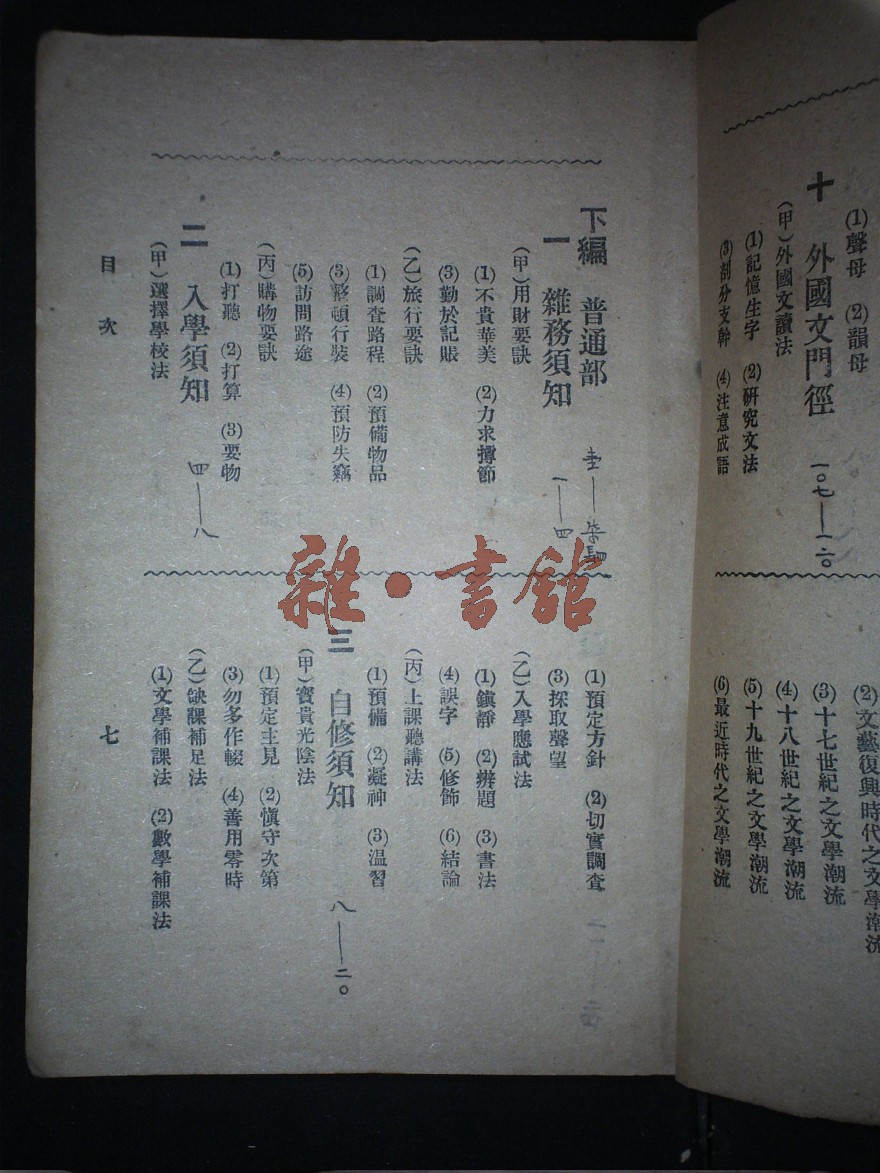 (1)聲母 (2)韻母
十 外國文門徑 一〇七——一二〇
(甲)外國文讀法
(1)記憶生字 (2)硏究文法
(3)剖分支幹 (4)注意成語
(2)文藝復興時代之文學潮流
(3)十七世紀之文學潮流
(4)十八世紀之文學潮流
(5)十九世紀之文學潮流
(6)最近時代之文學潮流
下編 普通部
一 雜務須知 一——四
(甲)用財要訣
(1)不貴華美 (2)力求撙節
(3)勤於記賬
(乙)旅行要訣
(1)調查路程 (2)預備物品
(3)整頓行裝 (4)預防失竊
(5)訪問路途
(丙)購物要訣
(1)打聽 (2)打算 (3)要物
二 入學須知 四——八
(甲)選擇學校法
(1)預定方針 (2)切實調査
(3)採取聲望
(乙)入學應試法
(1)鎭靜 (2)辨題 (3)書法
(4)誤字 (5)修飾 (6)結論
(丙)上課聽講法
(1)預備 (2)凝神 (3)溫習
三 自修須知 八——二〇
(甲)寶貴光陰法
(1)預定主見 (2)愼守次第
(3)勿多作輟 (4)善用零時
(乙)缺課補足法
(1)文學補課法 (2)數學補課法
目次
七
雜·書館